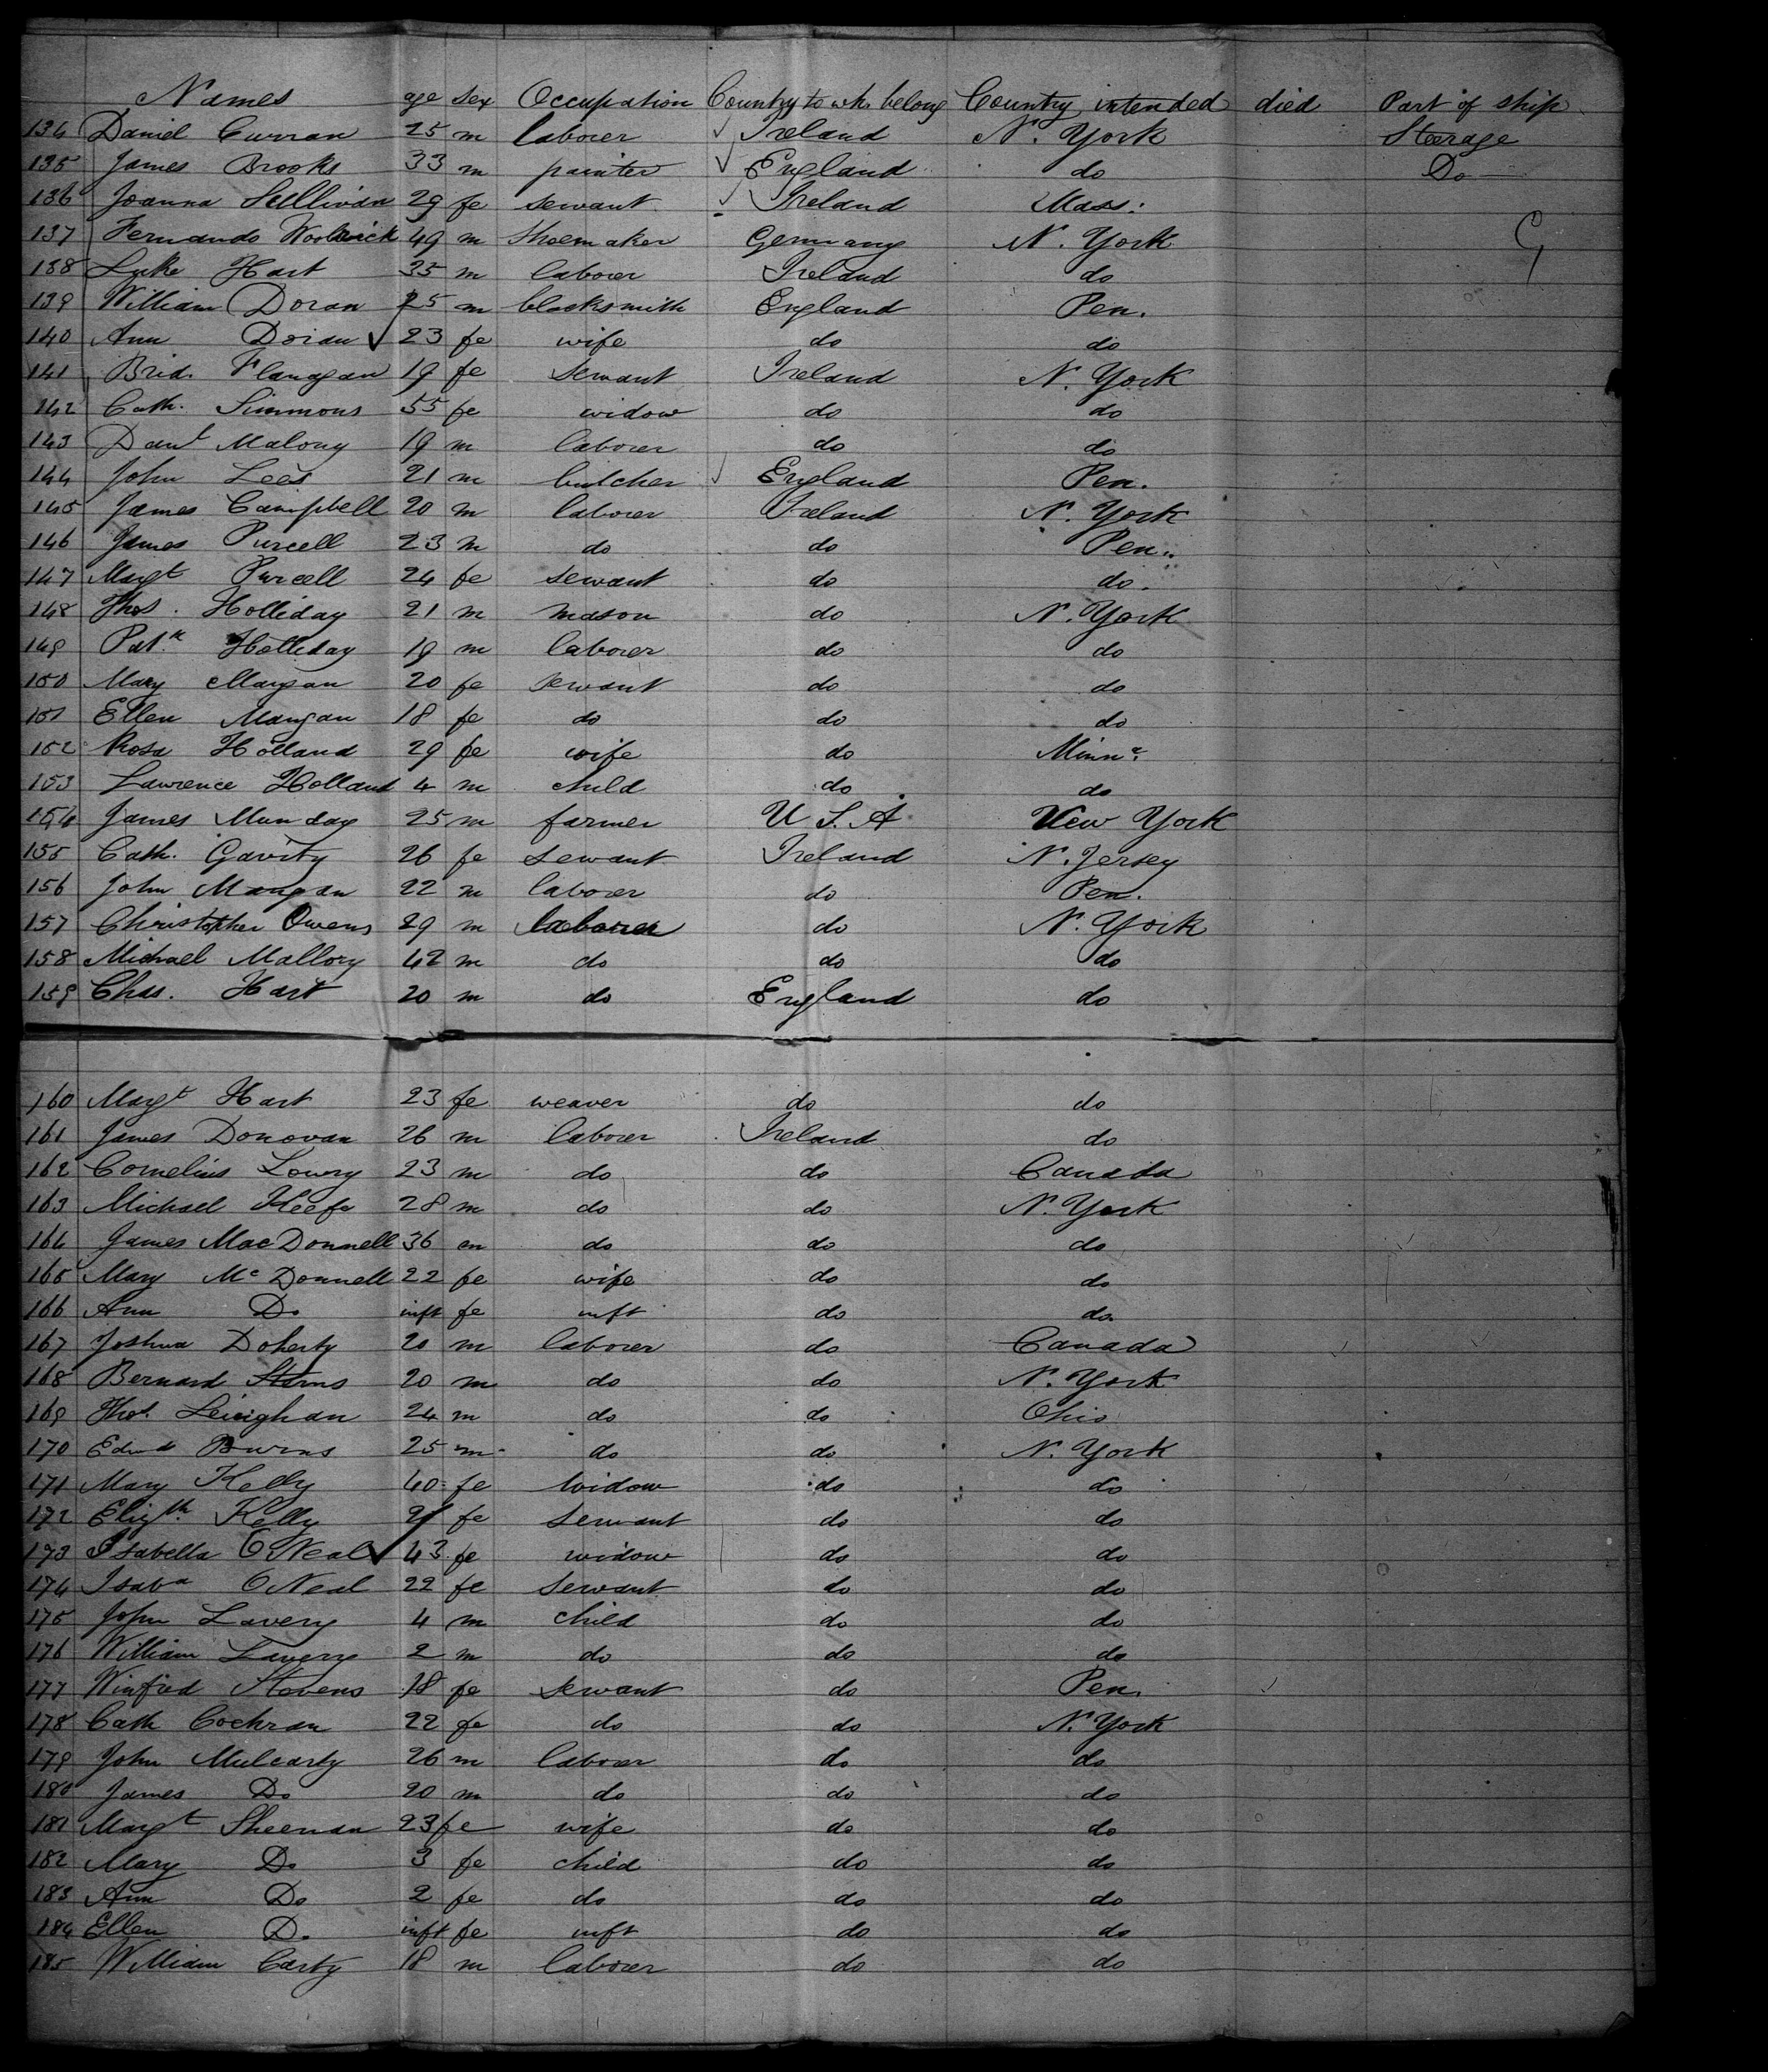 Names age sex Occupation Country to wh. belong Country intended died Part of ship
134 Daniel Curran 25 m laborer Ireland N. York Steerage
135 James Brooks 33 m painter England do Do
136 Joanna Sullivan 29 fe servant Ireland Mass:
137 Fernando 49 m Shoemaker Germany N. York
138 Luke Hart 35 m laborer Ireland do
139 William Doran 25 m blacksmith England Pen.
140 Ann Doran 23 fe wife do do
141 Brid. Flanagan 19 fe servant Ireland N. York
142 Cath. Simmons 55 fe widow do do
143 Danl Malony 19 m laborer do do
144 John Lees 21 m butcher England Pen.
145 James Campbell 20 m laborer Ireland N. York
146 James Purcell 23 m do do Pen.
147 Margt Purcell 24 fe servant do do.
148 Thos. Holliday 21 m mason do N. York
149 Patk Holliday 19 m laborer do do
150 Mary Mangan 20 fe servant do do
151 Ellen Mangan 18 fe do do do
152 Rosa Holland 29 fe wife do Minna
153 Lawrence Holland 4 m child do do
154 James Munday 25 m farmer U.S.A. New York
155 Cath. Gavity 26 fe servant Ireland N. Jersey
156 John Mangan 22 m laborer do Pen.
157 Christopher Owens 29 m laborer do N. York
158 Michael Mallory 42 m do do do
159 Chas. Hart 20 m do England do
160 Margt Hart 23 fe weaver do do
161 James Donovan 26 m laborer Ireland do
162 Cornelius Lowry 23 m do do Canada
163 Michael Keefe 28 m do do N. York
164 James MacDonnell 36 m do do do
165 Mary McDonnell 22 fe wife do do
166 Ann Do inft fe inft do do
167 Joshua Doherty 20 m laborer do Canada
168 Bernard Starns 20 m do do N. York
169 Thos. 24 m do do Ohio
170 Edwd Burns 25 m do do N. York
171 Mary Kelly 40 fe widow do do
172 Elizth Kelly 21 fe servant do do
173 Isabella O'Neal 43 fe widow do do
174 Isaba O'Neal 22 fe servant do do
175 John Lavery 4 m child do do
176 William Lavery 2 m do do do
177 Winfred Stovens 18 fe servant do Pen.
178 Cath Cochran 22 fe do do N. York
179 John Mulcarty 26 m laborer do do
180 James Do 20 m do do do
181 Margt Sheenan 23 fe wife do do
182 Mary Do 3 fe child do do
183 Ann Do 2 fe do do do
184 Ellen Do inft fe inft do do
185 William Carty 18 m laborer do do